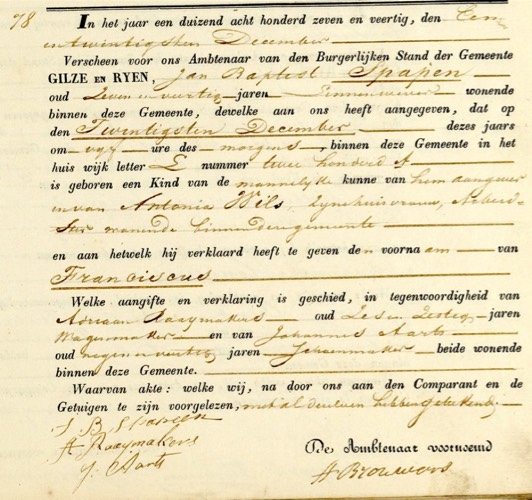 78
In het jaar een duizend acht honderd zeven en veertig, den Een
entwintigsten December
Verscheen voor ons Ambtenaar van den Burgerlijken Stand der Gemeente
GILZE EN RYEN, Jan Baptist Spapen
oud zeven en veertig jaren wonende
binnen deze Gemeente, dewelke aan ons heeft aangegeven, dat op
den Twintigsten December dezes jaars
om vyf ure des morgens, binnen deze Gemeente in het
huis wijk letter E nummer twee honderd
is geboren een Kind van de mannelyke kunne van hem aangever
en van Antonia Wils, Zyne huisvrouw,
wonende binnen deze gemeente
en aan hetwelk hij verklaard heeft te geven den voornaam van
Franciscus
Welke aangifte en verklaring is geschied, in tegenwoordigheid van
Adriaan Raaymakers oud jaren
Wagenmaker en van Johannes Aarts
oud negen en veertig jaren Schoenmaker beide wonende
binnen deze Gemeente.
Waarvan akte: welke wij, na door ons aan den Comparant en de
Getuigen te zijn voorgelezen, met al dezelven hebben getekend.
J B Spapen
A Raaymakers
J. Aarts
De Ambtenaar voornoemd
A Brouwers